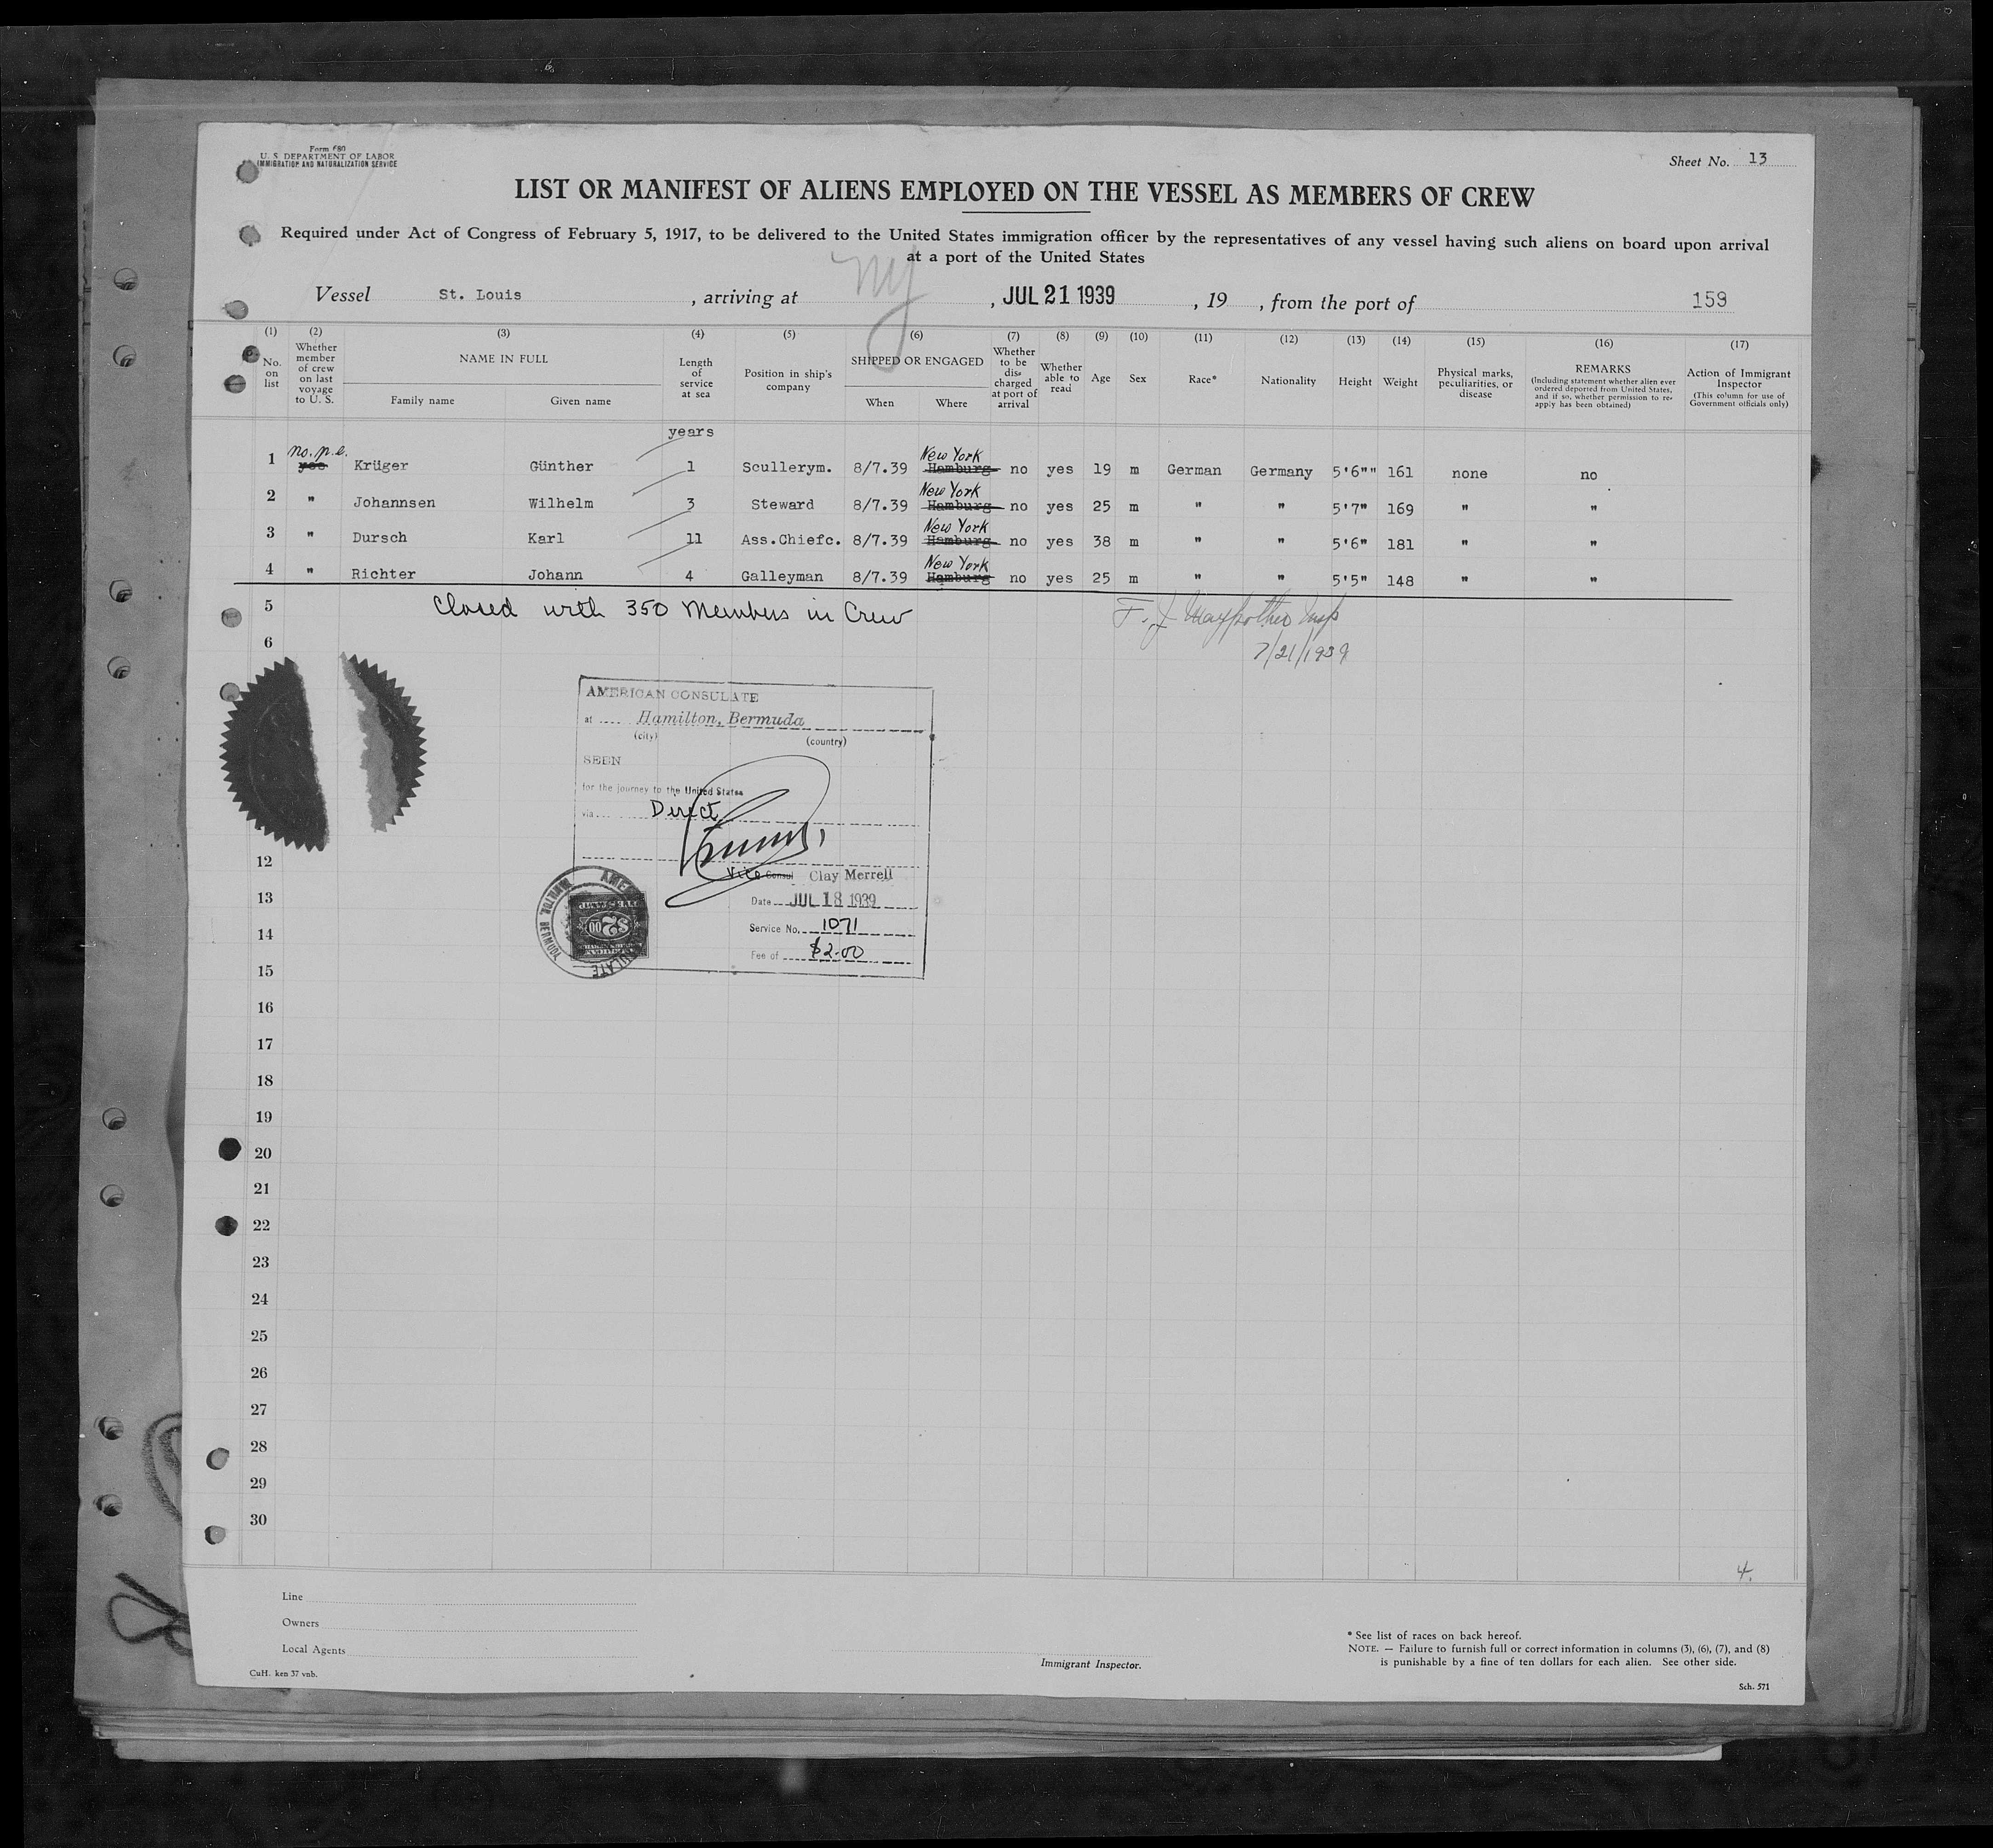 Form 680
U. S. DEPARTMENT OF LABOR
IMMIGRATION AND NATURALIZATION SERVICE
Sheet No. 13
LIST OR MANIFEST OF ALIENS EMPLOYED ON THE VESSEL AS MEMBERS OF CREW
Required under Act of Congress of February 5, 1917, to be delivered to the United States immigration officer by the representatives of any vessel having such aliens on board upon arrival
at a port of the United States
Vessel St. Louis , arriving at NY , JUL 21 1939 , 19 , from the port of 159
(1) (2) (3) (4) (5) (6) (7) (8) (9) (10) (11) (12) (13) (14) (15) (16) (17)
No. on list
Whether member of crew on last voyage to U. S.
NAME IN FULL
Family name Given name
Length of service at sea
Position in ship's company
SHIPPED OR ENGAGED
When Where
Whether to be discharged at port of arrival
Whether able to read
Age
Sex
Race*
Nationality
Height
Weight
Physical marks, peculiarities, or disease
REMARKS
(Including statement whether alien ever ordered deported from United States, and if so, whether permission to re-apply has been obtained)
Action of Immigrant Inspector
(This column for use of Government officials only)
years
no. p.e. New York
1 yes Krüger Günther 1 Scullerym. 8/7.39 Hamburg no yes 19 m German Germany 5'6"" 161 none no
New York
2 " Johannsen Wilhelm 3 Steward 8/7.39 Hamburg no yes 25 m " " 5'7" 169 " "
New York
3 " Dursch Karl 11 Ass.Chiefc. 8/7.39 Hamburg no yes 38 m " " 5'6" 181 " "
New York
4 " Richter Johann 4 Galleyman 8/7.39 Hamburg no yes 25 m " " 5'5" 148 " "
5 Closed with 350 Members in Crew F. J. Insp
6 7/21/1939
AMERICAN CONSULATE
at Hamilton, Bermuda
(city) (country)
SEEN
for the journey to the United States
via Direct
Vice Consul Clay Merrell
Date JUL 18 1939
Service No. 1071
Fee of $2.00
12
13
14
15
16
17
18
19
20
21
22
23
24
25
26
27
28
29
30
4.
Line
Owners
Local Agents
CuH. ken 37 vnb.
Immigrant Inspector.
* See list of races on back hereof.
NOTE. — Failure to furnish full or correct information in columns (3), (6), (7), and (8)
is punishable by a fine of ten dollars for each alien. See other side.
Sch. 571